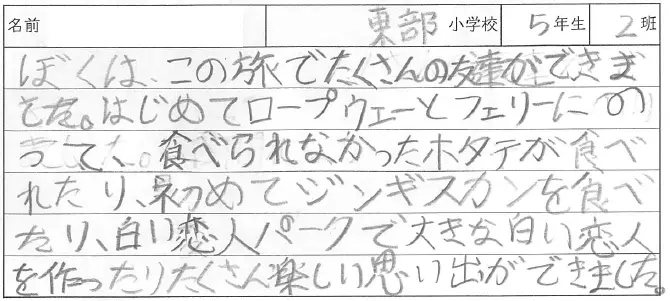 名前 東部 小学校 5年生 2班
ぼくは、この旅でたくさんの友達ができま
した。はじめてロープウェーとフェリーにの
って、食べられなかったホタテが食べ
れたり、初めてジンギスカンを食べ
たり、白い恋人パークで大きな白い恋人
を作ったりたくさん楽しい思い出ができました。